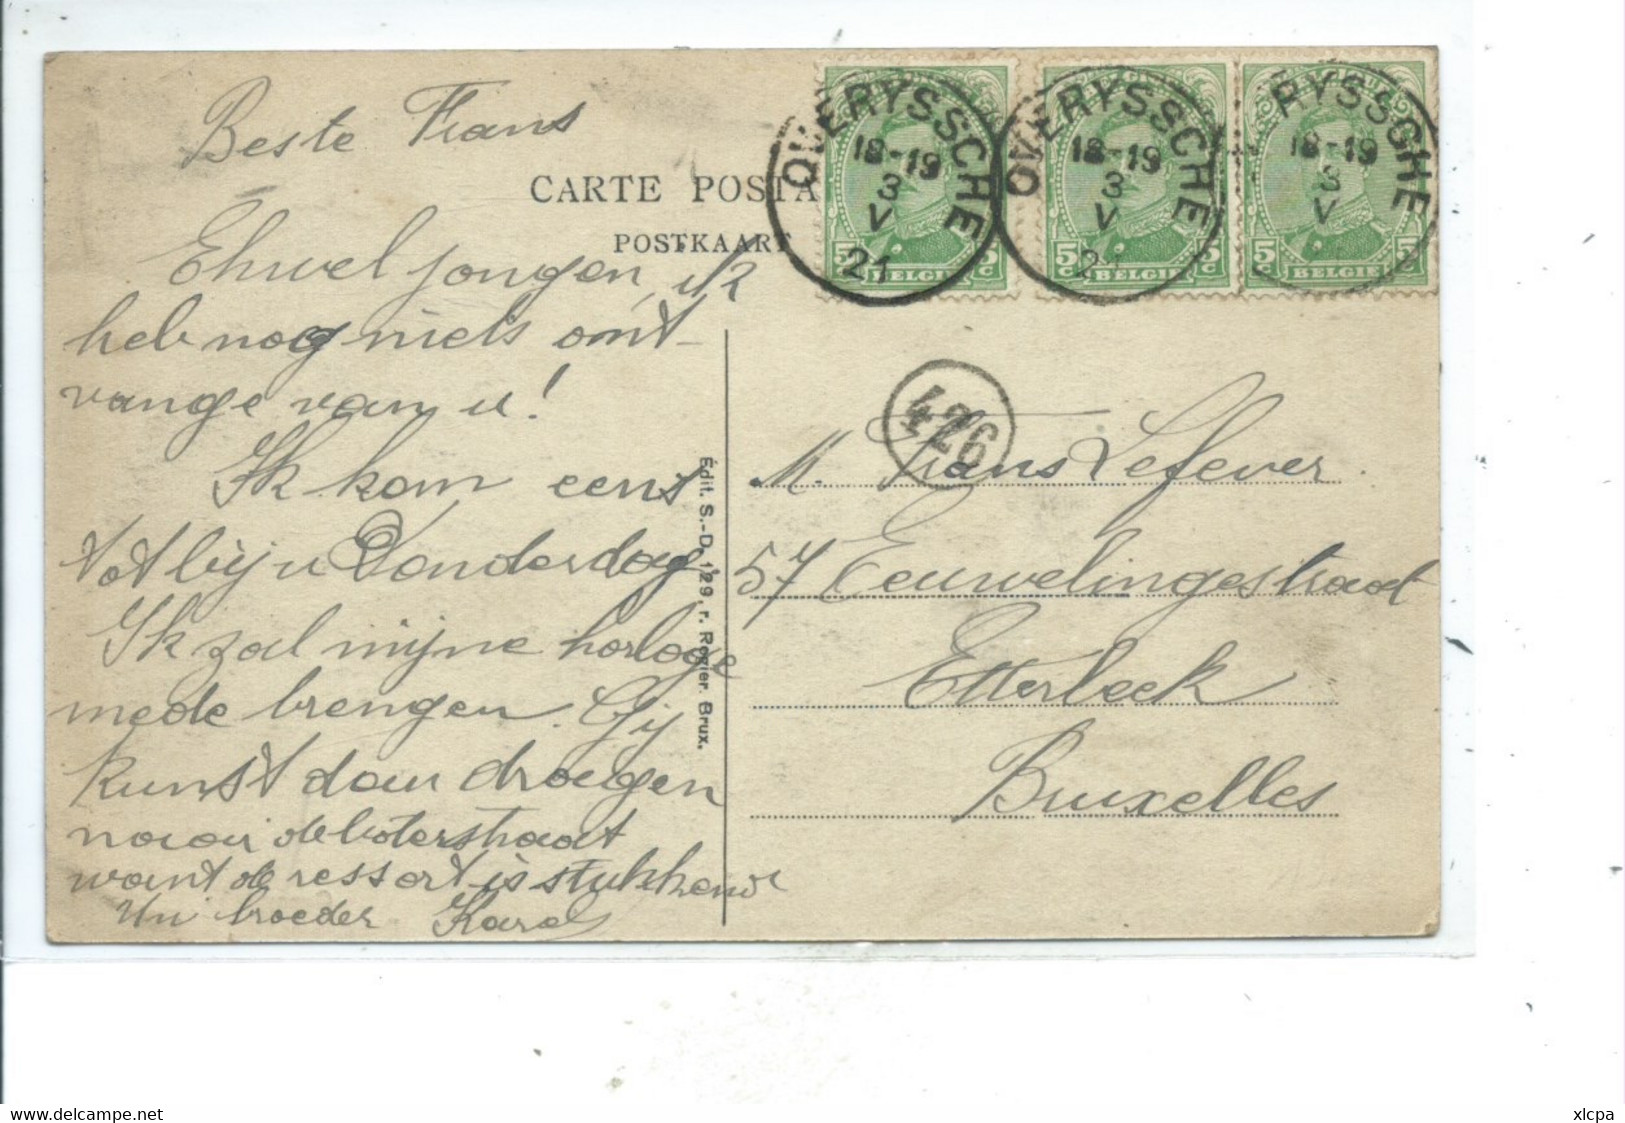 Beste Frans
CARTE POSTA
POSTKAART
Ehwel jongen, ik
heb nog niets ont-
vange van u!
Ik kom eens
tot bij u Donderdag
Ik zal mijne horloge
mede brengen. Gij
kunst dan droegen
naar de boterstraat
want de ressort is stukkend
Uw broeder Karel
Édit. S.-D. 129, r. Rogier. Brux.
OVERYSSCHE
18-19
3
V
21
5c BELGIË 5c
OVERYSSCHE
18-19
3
V
21
5c BELGIE 5c
RYSSCHE
18-19
3
V
5c BELGIE 5c
426
M. Frans Lefever
57 Eeuwelingestraat
Etterbeek
Bruxelles
www.delcampe.net
xlcpa